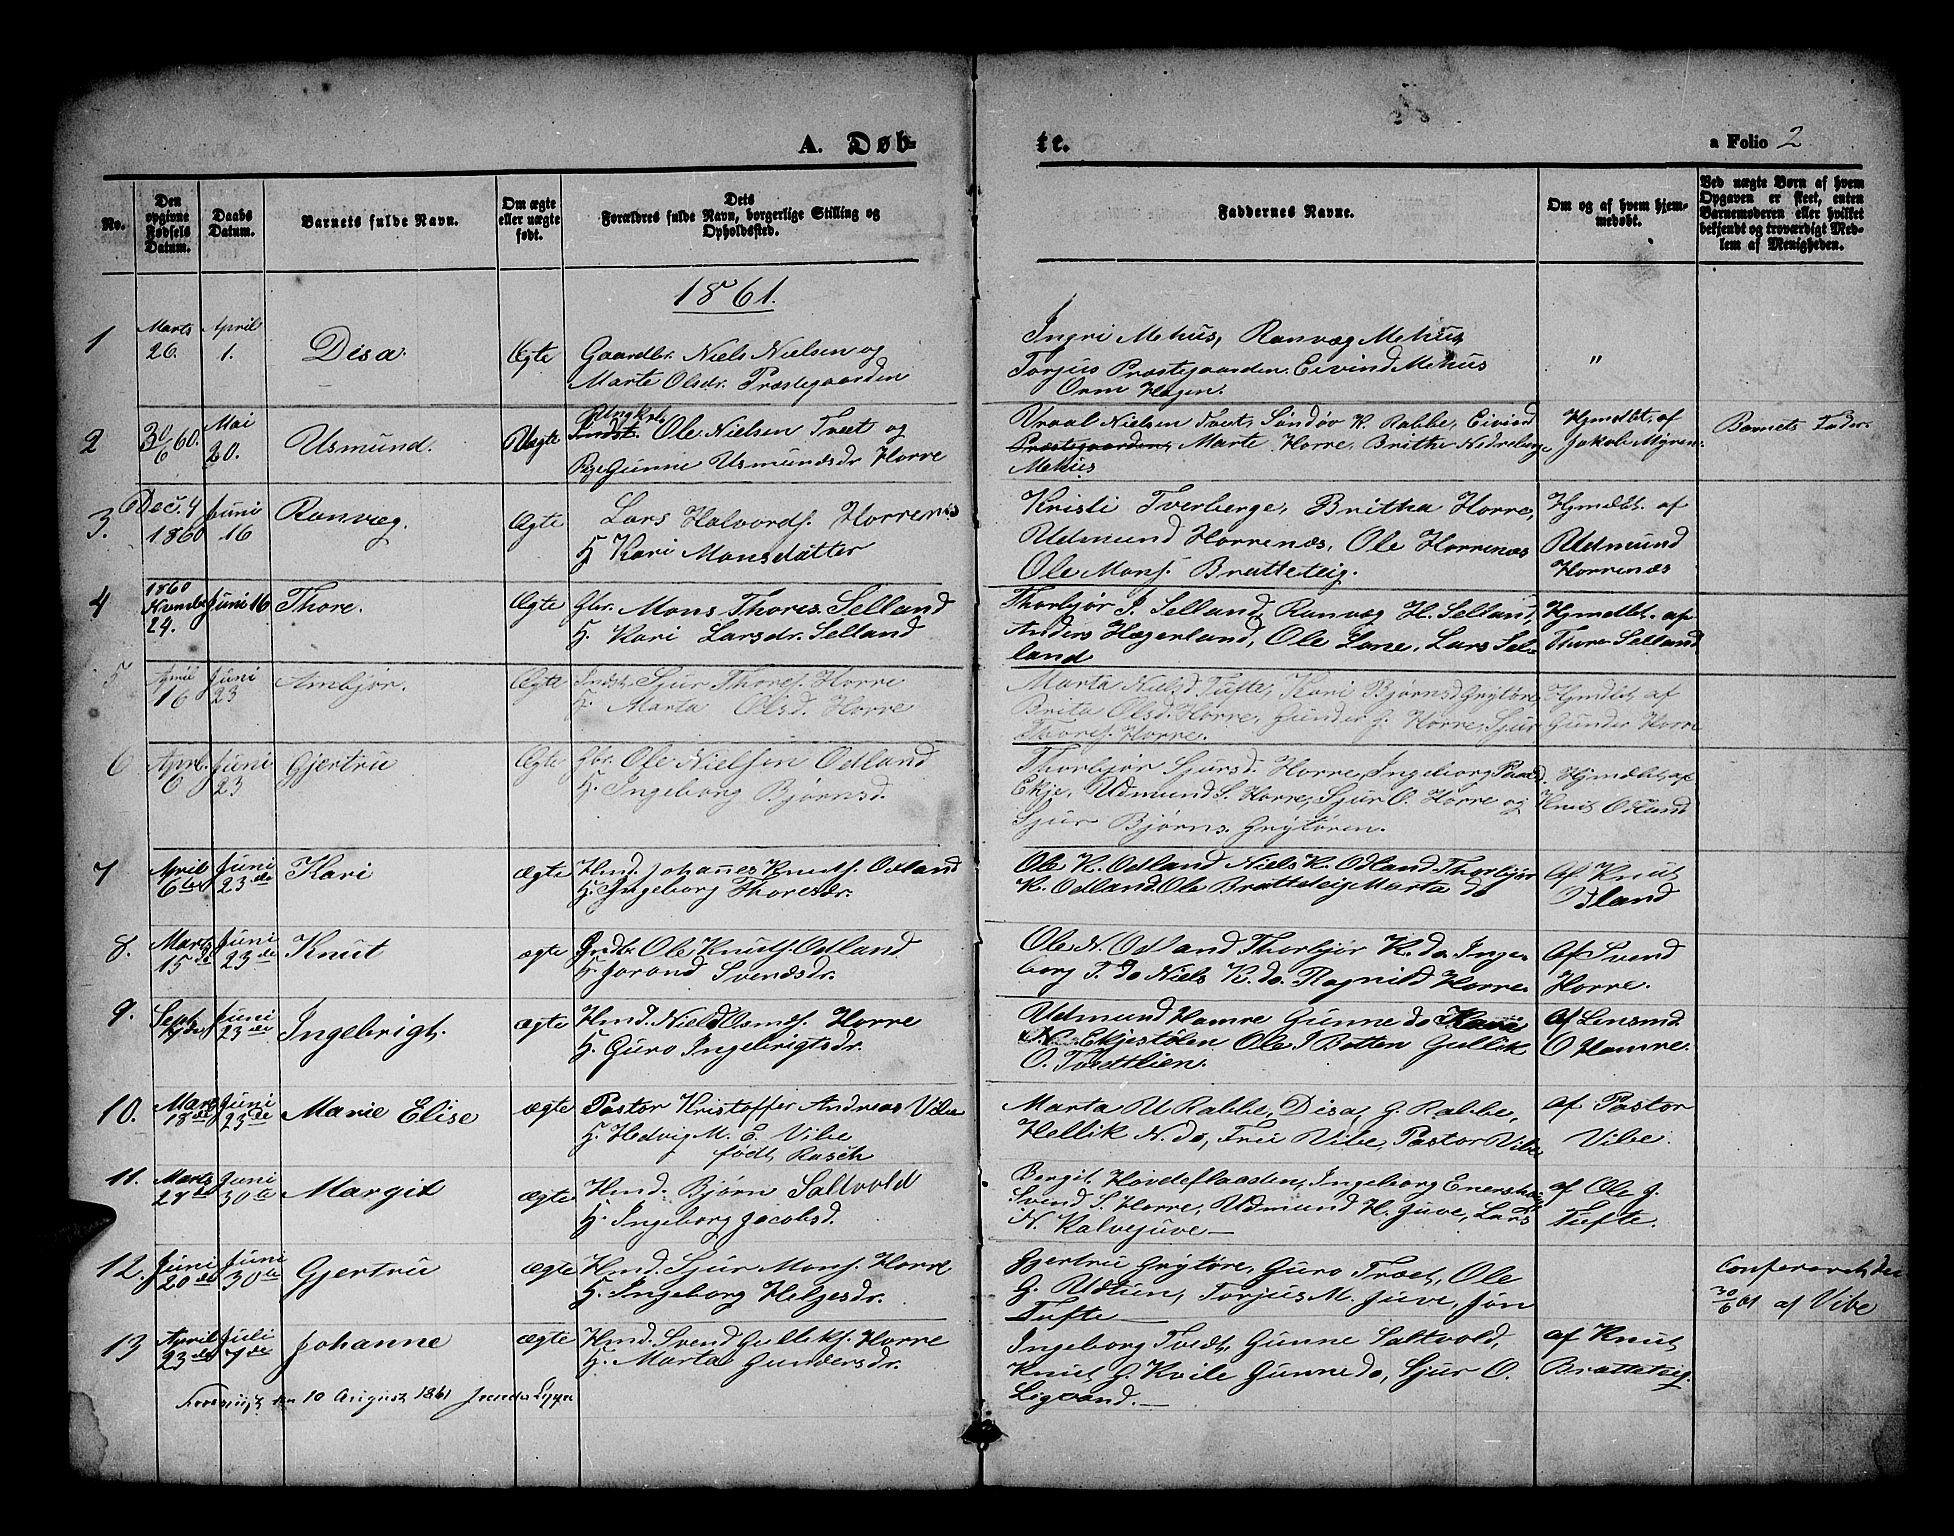 A. Døb-
te.
a Folio 2
No.
Den opgivne Fødsels Datum.
Daabs Datum.
Barnets fulde Navn.
Om ægte eller uægte født.
Dets Forældres fulde Navn, borgerlige Stilling og Opholdssted.
Faddernes Navne.
Om og af hvem hjemmedøbt.
Ved uægte Børn af hvem Opgaven er skeet, enten Barnemoderen eller hvilket bekjendt og troværdigt Medlem af Menigheden.
1861.
1 Marts 26. April 1. Disa. Ægte Gaardbr. Niels Nielsen og
Marte Olsdr. Præstegaarden
Ingri Mehus, Ranvæg Mehus
Torjus Præstegaarden. Eivind Mehus
Orm Hagen.
"
2 30/6 60. Mai 20. Usmund. Uægte Ungk. Ole Nielsen Tveit og
Pige Gunne Usmundsdr Horre
Vraal Nielsen Tveit, Søndøv K. Rabbe, Eivind
Præstegaarden, Marte Horre, Brithe Nedreberge
Mehus
Hjmdbt. af
Jakob Myren.
Barnets Fader.
3. Dec. 4 1860 Juni 16 Ranvæg. Ægte Lars Halvords. Horrenæs
H. Kari Monsdatter
Kristi Tverberge, Britha Horre,
Udmund Horrenæs, Ole Horrenæs
Ole Mons. Bratteteig.
Hjmdbt. af
Udmund
Horrenæs
4 1860 24. Juni 16 Thore. Ægte Gbr. Mons Thores. Selland
H. Kari Larsdr. Selland
Thorbjør J. Selland, Ranvæg H. Selland,
Anders Hægerland, Ole Lone, Lars Sel-
land
Hjmdbt. af
Thore Selland
5 April 16 Juni 23 Ambjør. Ægte Indst. Sjur Thores. Horre
H. Marta Olsd. Horre
Marta Nielsd Tufte, Kari Bjørnsd Grytøre
Brita Olsd. Horre, Gunder G. Horre, Sjur
Thores. Horre.
Hjmdbt af
Gunder Horre
6 Aprl. 6 Juni 23 Gjertru Ægte Gbr. Ole Nielsen Odland
H. Ingeborg Bjørnsd.
Thorbjør Sjursd. Horre, Ingeborg
Ekje, Udmund S. Horre, Sjur O. Horre og
Sjur Bjørns. Grytøren.
Hjmdbt. af
Knut Odland
7 April 6te Juni 23de Kari ægte Hmd. Johannes Knuts. Odland
H. Ingeborg Thoresdr.
Ole K. Odland Niels K. Odland Thorbjør
K. Odland Ole Bratteteig Marta do
af Knut
Odland
8. Marts 15de Juni 23de Knut ægte Ole Knuts. Odland
H. Jorand Svendsdr.
Ole N. Odland Thorbjør K. do. Inge-
borg T. do Niels K. do. Ragnild Horre.
af Svend
Horre.
9. Sept. Juni 23de Ingebrigt. ægte Hmd. Niels Osmds. Horre
H. Guro Ingebrigtsdr.
Udmund Hamre Gunne do Kari
N. Ekjestølen Ole I Botten Gullik
O. Tvedtlien.
af Lensmd.
O Hamre.
10. Marts 18de Juni 23de Marie Elise ægte Pastor Kristoffer Andreas Vibe
H. Hedvig M. E. Vibe
født Rasch
Marta U Rabbe, Disa G. Rabbe,
Hellik N. do, Fru Vibe, Pastor Vibe
af Pastor
Vibe.
11. Marts 27de Juni 30te Margit ægte Hmd. Bjørn Saltvold
H. Ingeborg Jacobsd.
Bergit Hovdeflaaden, Ingeborg
Svend S. Horre, Udmund H. Juve, Lars
N. Kalvejuve —
af Ole J.
Tufte.
12. Juni 20de Juni 30te Gjertru ægte Hmd. Sjur Mons. Horre
H. Ingeborg Helgesdr.
Gjertru Grytøre, Guro Træet, Ole
G. Udtun, Torjus M. Juve, Jøn
Tufte —
30/6 61 af Vibe
13 April 23de Juli 7de Johanne ægte Hmd. Svend Gulliks. Horre
H. Marta Gundersdr.
Ingeborg Tvedt, Gunne Saltvold,
Knut G. Kvile Gunne do, Sjur O.
Ligvand. —
af Knut
Bratteteig
den 10 August 1861